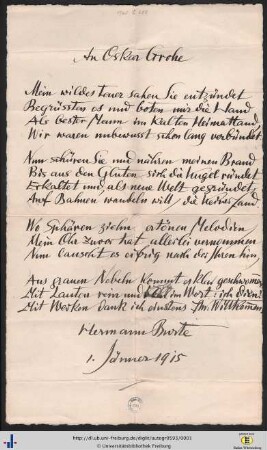 An Oskar Grohe
Mein wildes Feuer sahen Sie entzündet
Begrüssten es und boten mir die Hand
Als bester Mann im kalten Heimatland,
Wir waren unbewusst schon lang verbündet.
Nun schüren Sie und nähren meinen Brand
Bis aus den Gluten sich die Kugel ründet
Erkaltet und als neue Welt gegründet
Auf Bahnen wandeln will die keiner fand.
Wo Sphären ziehn, ertönen Melodien
Mein Ohr zuvor hat allerlei vernommen
Nun lauscht es eifrig nach des Ihren hin,
Aus grauen Nebeln kommt es geschwommen
Mit Lauten rein und im Wort: ich
Mit Werken dank ich Ihr Willkommen
Hermann Burte
1. Jänner 1915
http://dl.ub.uni-freiburg.de/diglit/autogr0593/0001
© Universitätsbibliothek Freiburg